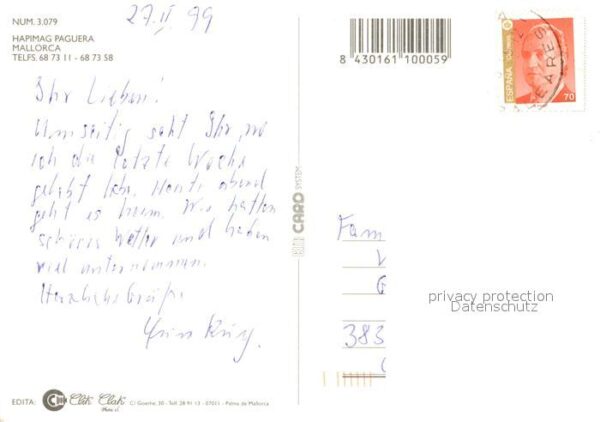 NUM. 3.079
HAPIMAG PAGUERA
MALLORCA
TELFS. 68 73 11 - 68 73 58
27. II 99
8 430161 100059
ESPAÑA
CORREOS
70
EARES
Ihr Lieben!
Umseitig seht Ihr, wo
ich die letzte Woche
gelebt habe. Heute abend
geht es heim. Wir hatten
schönes Wetter und haben
viel unternommen.
Herzliche Grüße
BIG CARD SYSTEM
Fam
383
privacy protection
Datenschutz
EDITA:
Clik Clak
C/ Goethe, 30 - Telf. 28 91 13 - 07011 - Palma de Mallorca